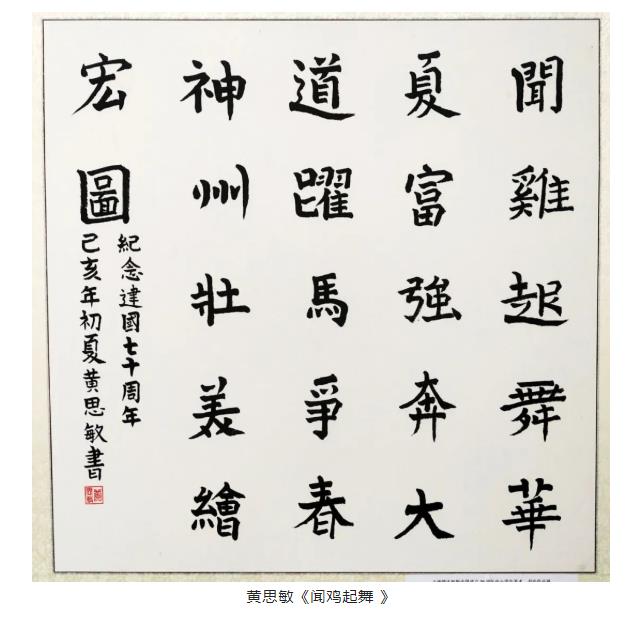 聞雞起舞華
夏富強奔大
道躍馬爭春
神州壯美繪
宏圖
紀念建國七十周年
己亥年初夏黄思敏書
黄思敏《闻鸡起舞 》